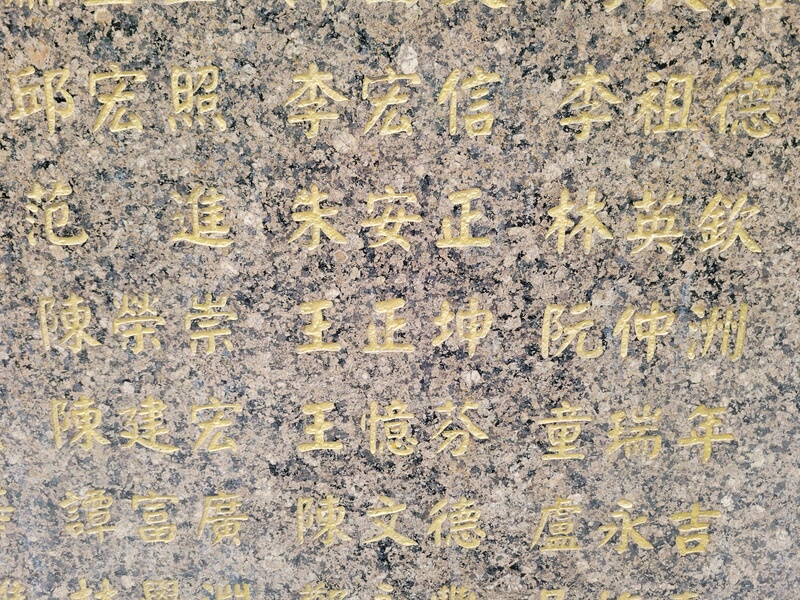 邱宏照 李宏信 李祖德
范 進 朱安正 林英欽
陳榮崇 王正坤 阮仲洲
陳建宏 王憶芬 童瑞年
譚富廣 陳文德 盧永吉